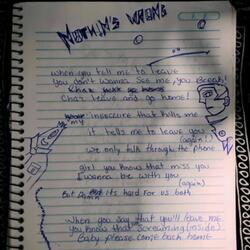 NOTHIN'S WRONG
when you tell me to leave
You don't wanna see me, you
leave and go home!
insecure that kills me
it tells me to leave you
(again)
we only talk through the phone
girl you know that miss you
I wanna be with you
(again)
But it's hard for us both
When you say that you'll leave me
you know that screaming (inside)
Baby please come back home